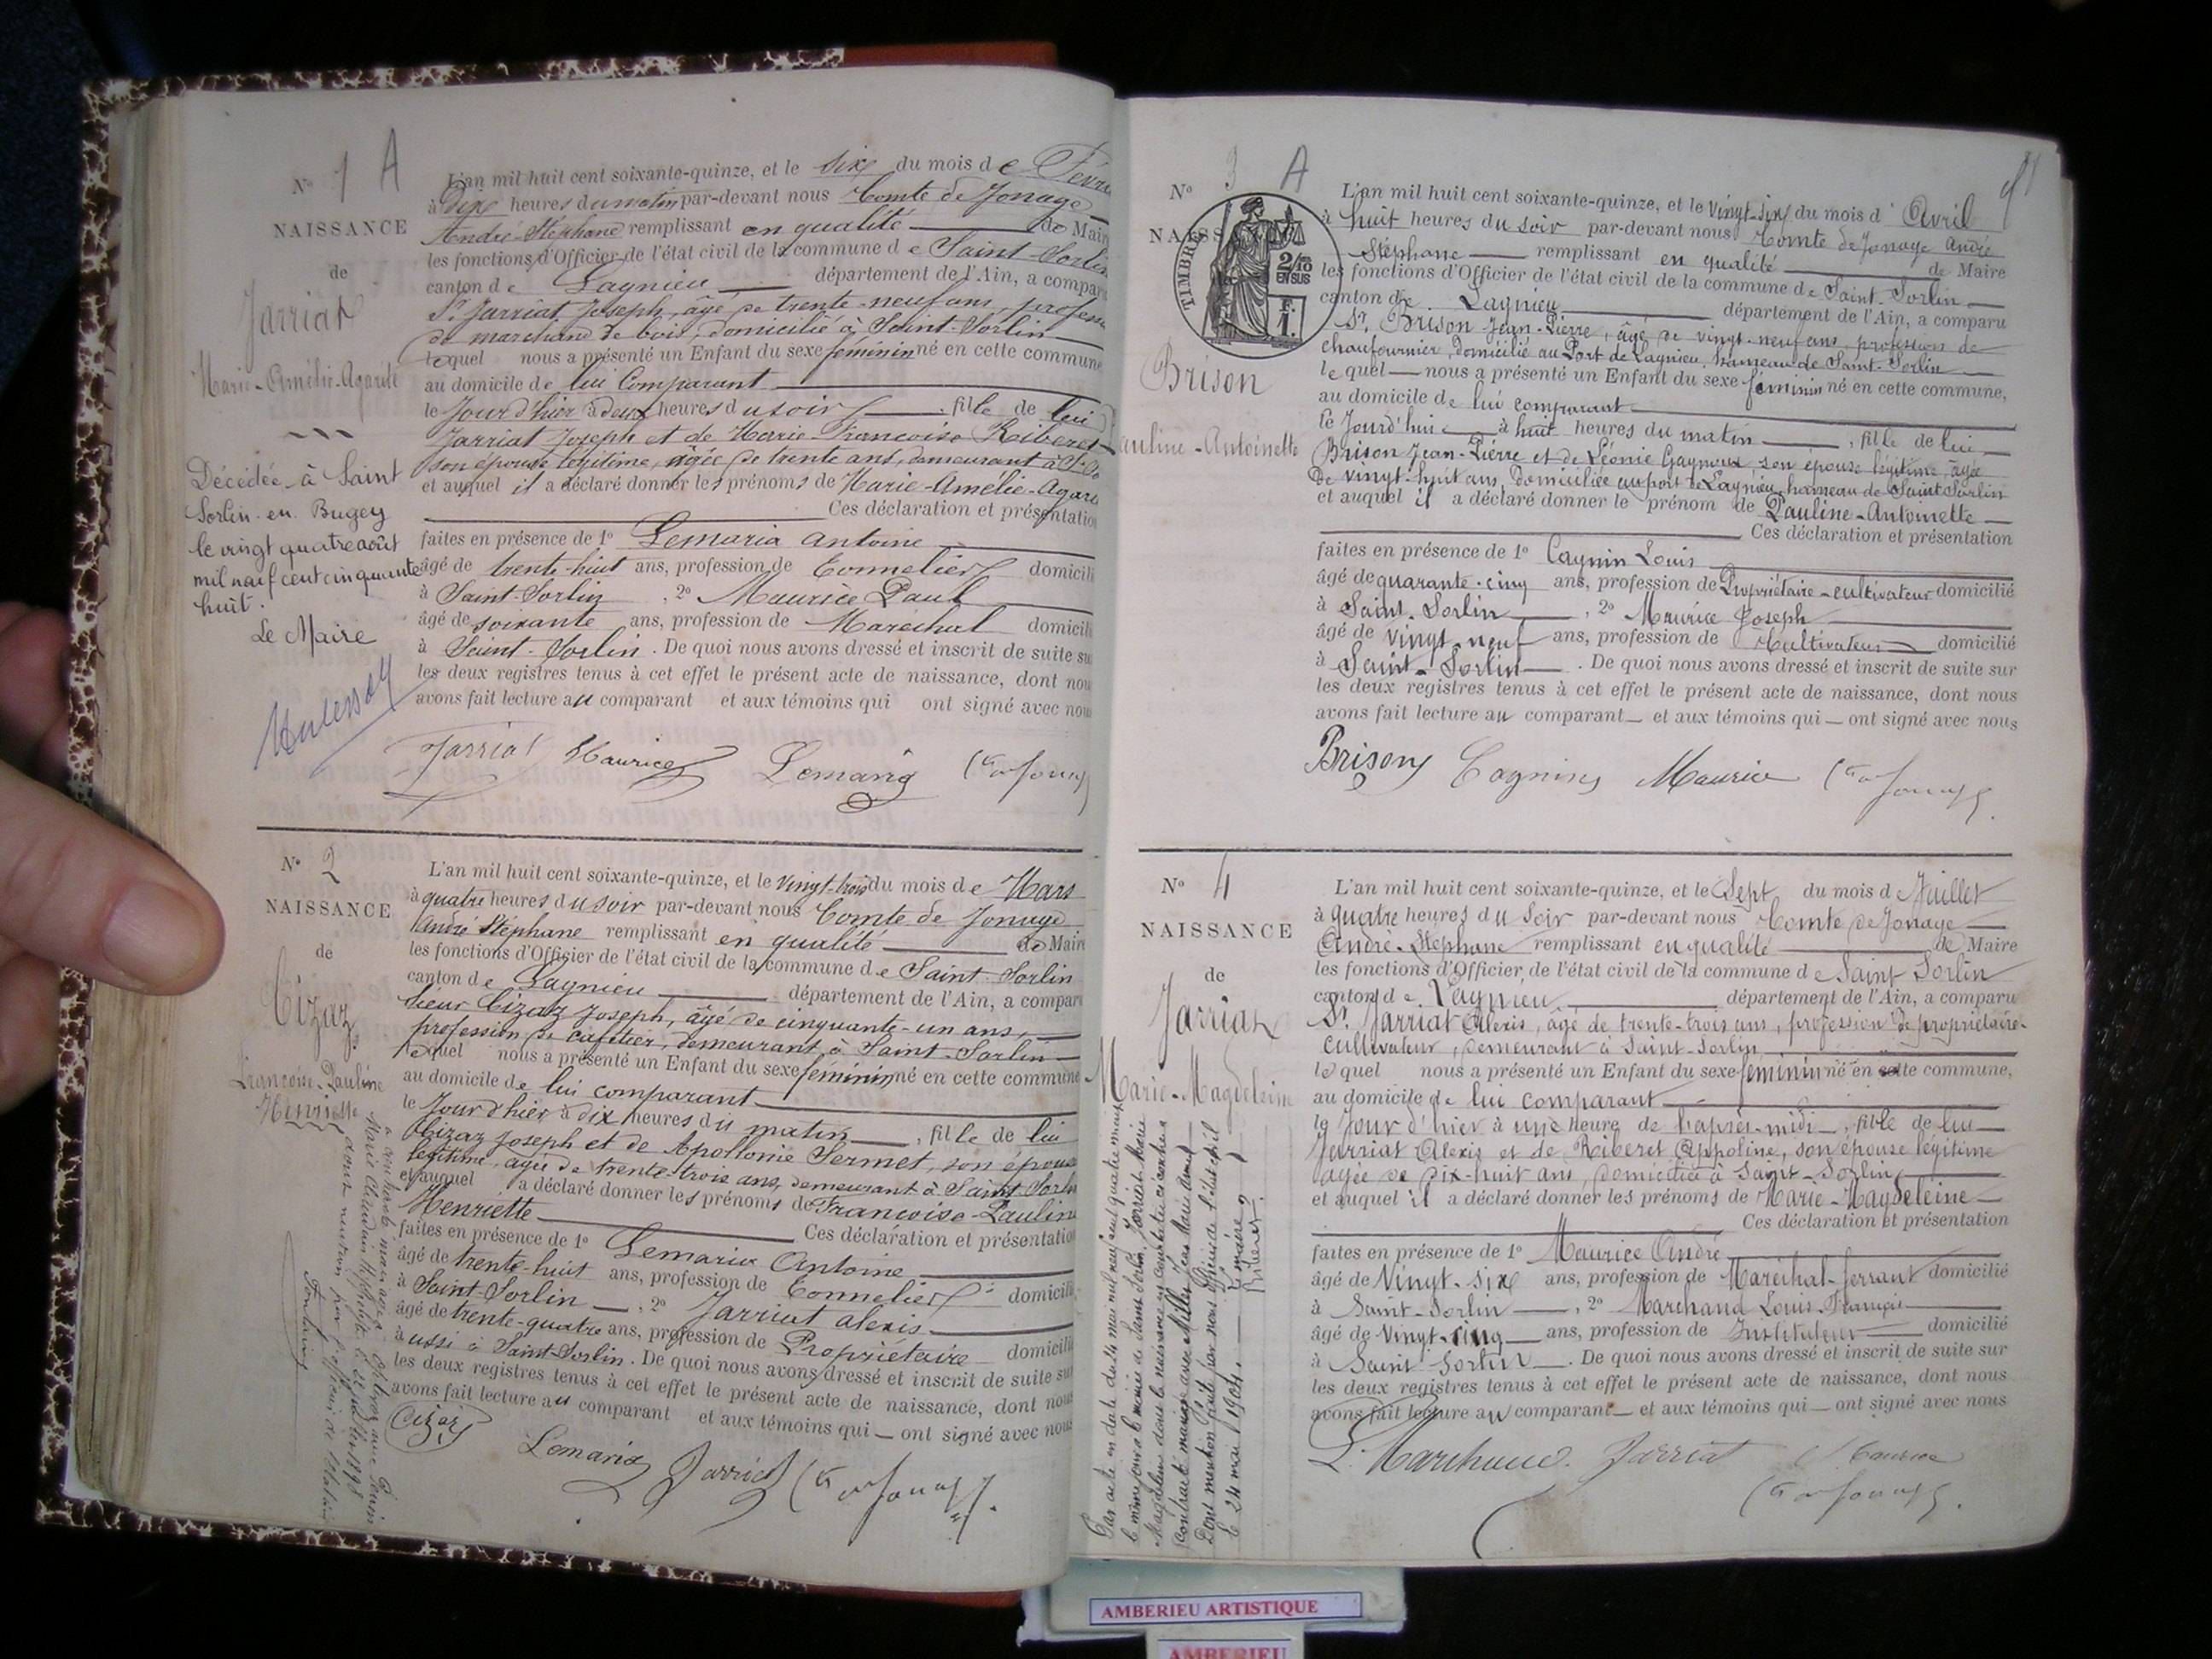 N° 1 A
NAISSANCE
de
Jarriat
Marie-Amélie-Agarite
Décédée à Saint
Sorlin-en Bugey
le vingt quatre août
mil neuf cent cinquante
huit.
Le Maire
L'an mil huit cent soixante-quinze, et le six du mois de Févri
à Dix heures du matin par-devant nous Comte de Jonage
André-Stéphane remplissant en qualité de Mair
les fonctions d'Officier de l'état civil de la commune de Saint-Sorlin
canton de Lagnieu département de l'Ain, a compar
Sr Jarriat Joseph, âgé de trente-neuf ans, profess
de marchand de bois, domicilié à Saint-Sorlin
lequel nous a présenté un Enfant du sexe féminin né en cette commune
au domicile de lui Comparant
le Jour d'hier à deux heures du soir, fille de lui
Jarriat Joseph et de Marie-Françoise Riberet
son épouse légitime, âgée de trente ans, demeurant à St-So
et auquel il a déclaré donner les prénoms de Marie-Amélie-Agari
Ces déclaration et présentation
faites en présence de 1° Lemaria Antoine
âgé de trente-huit ans, profession de Tonnelier domicili
à Saint-Sorlin, 2° Maurice Paul
âgé de soixante ans, profession de Maréchal domicili
à Saint-Sorlin. De quoi nous avons dressé et inscrit de suite su
les deux registres tenus à cet effet le présent acte de naissance, dont nou
avons fait lecture au comparant et aux témoins qui ont signé avec nou
Jarriat Maurice Lemaria
N° 2
NAISSANCE
de
Cizaz
Françoise-Pauline
Henriette
L'an mil huit cent soixante-quinze, et le vingt-trois du mois de Mars
à quatre heures du soir par-devant nous Comte de Jonage
André Stéphane remplissant en qualité de Mair
les fonctions d'Officier de l'état civil de la commune de Saint-Sorlin
canton de Lagnieu département de l'Ain, a compar
sieur Cizaz Joseph, âgé de cinquante-un ans,
profession de cafetier, demeurant à Saint-Sorlin
lequel nous a présenté un Enfant du sexe féminin né en cette commune
au domicile de lui comparant
le Jour d'hier à dix heures du matin, fille de lui
Cizaz Joseph et de Apollonie Sermet, son épouse
légitime, âgée de trente-trois ans, demeurant à Saint-Sorlin
et auquel a déclaré donner les prénoms de Françoise-Pauline
Henriette Ces déclaration et présentation
faites en présence de 1° Lemaria Antoine
âgé de trente-huit ans, profession de Tonnelier domicili
à Saint-Sorlin, 2° Jarriat Alexis
âgé de trente-quatre ans, profession de Propriétaire domicili
aussi à Saint-Sorlin. De quoi nous avons dressé et inscrit de suite su
les deux registres tenus à cet effet le présent acte de naissance, dont nou
avons fait lecture au comparant et aux témoins qui ont signé avec nous
Cizaz
Lemaria Jarriat
N° 3 A
NAISS
TIMBRE
2/10
EN SUS
F.
1.
Brison
auline-Antoinette
L'an mil huit cent soixante-quinze, et le vingt-six du mois d'Avril
à huit heures du soir par-devant nous Comte de Jonage André
Stéphane remplissant en qualité de Maire
les fonctions d'Officier de l'état civil de la commune de Saint-Sorlin
canton de Lagnieu département de l'Ain, a comparu
Sr. Brison Jean-Pierre, âgé de vingt-neuf ans, profession de
chaufournier, domicilié au Port de Lagnieu, hameau de Saint-Sorlin
lequel nous a présenté un Enfant du sexe féminin né en cette commune,
au domicile de lui comparant
le Jourd'hui à huit heures du matin, fille de lui
Brison Jean-Pierre et de Léonie Gagnoux son épouse légitime, âgée
de vingt-huit ans, domiciliée au port de Lagnieu, hameau de Saint Sorlin
et auquel il a déclaré donner le prénom de Pauline-Antoinette
Ces déclaration et présentation
faites en présence de 1° Cagnin Louis
âgé de quarante-cinq ans, profession de Propriétaire-cultivateur domicilié
à Saint-Sorlin, 2° Maurice Joseph
âgé de vingt-neuf ans, profession de Cultivateur domicilié
à Saint-Sorlin. De quoi nous avons dressé et inscrit de suite sur
les deux registres tenus à cet effet le présent acte de naissance, dont nous
avons fait lecture au comparant et aux témoins qui ont signé avec nous
Brison Cagnin Maurice
N° 4
NAISSANCE
de
Jarriat
Marie-Magdeleine
L'an mil huit cent soixante-quinze, et le Sept du mois d Juillet
à quatre heures du Soir par-devant nous Comte de Jonage
André-Stéphane remplissant en qualité de Maire
les fonctions d'Officier de l'état civil de la commune de Saint Sorlin
canton de Lagnieu département de l'Ain, a comparu
Sr. Jarriat Alexis, âgé de trente-trois ans, profession de propriétaire-
cultivateur, demeurant à Saint-Sorlin
lequel nous a présenté un Enfant du sexe féminin né en cette commune,
au domicile de lui comparant
le Jour d'hier à une heure de l'après-midi, fille de lui
Jarriat Alexis et de Riberet Appoline, son épouse légitime
âgée de dix-huit ans, domiciliée à Saint-Sorlin
et auquel il a déclaré donner les prénoms de Marie-Magdeleine
Ces déclaration et présentation
faites en présence de 1° Maurice André
âgé de Vingt-six ans, profession de Maréchal-ferrant domicilié
à Saint-Sorlin, 2° Marchand Louis-François
âgé de Vingt-cinq ans, profession de Instituteur domicilié
à Saint Sorlin. De quoi nous avons dressé et inscrit de suite sur
les deux registres tenus à cet effet le présent acte de naissance, dont nous
avons fait lecture au comparant et aux témoins qui ont signé avec nous
L. Marchand. Jarriat Maurice
le 24 mai 1904.
AMBERIEU ARTISTIQUE
AMBERIEU